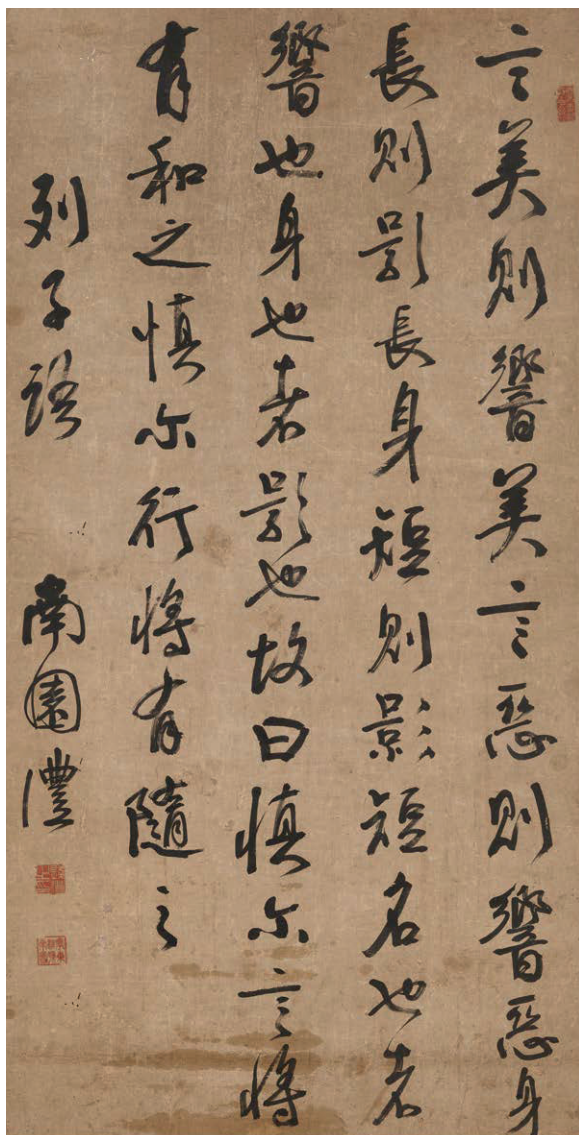 言美則響美言惡則響惡身
長則影長身短則影短名也者
響也身也者影也故曰慎尔言將
有和之慎尔行將有隨之
列子語 南園灃